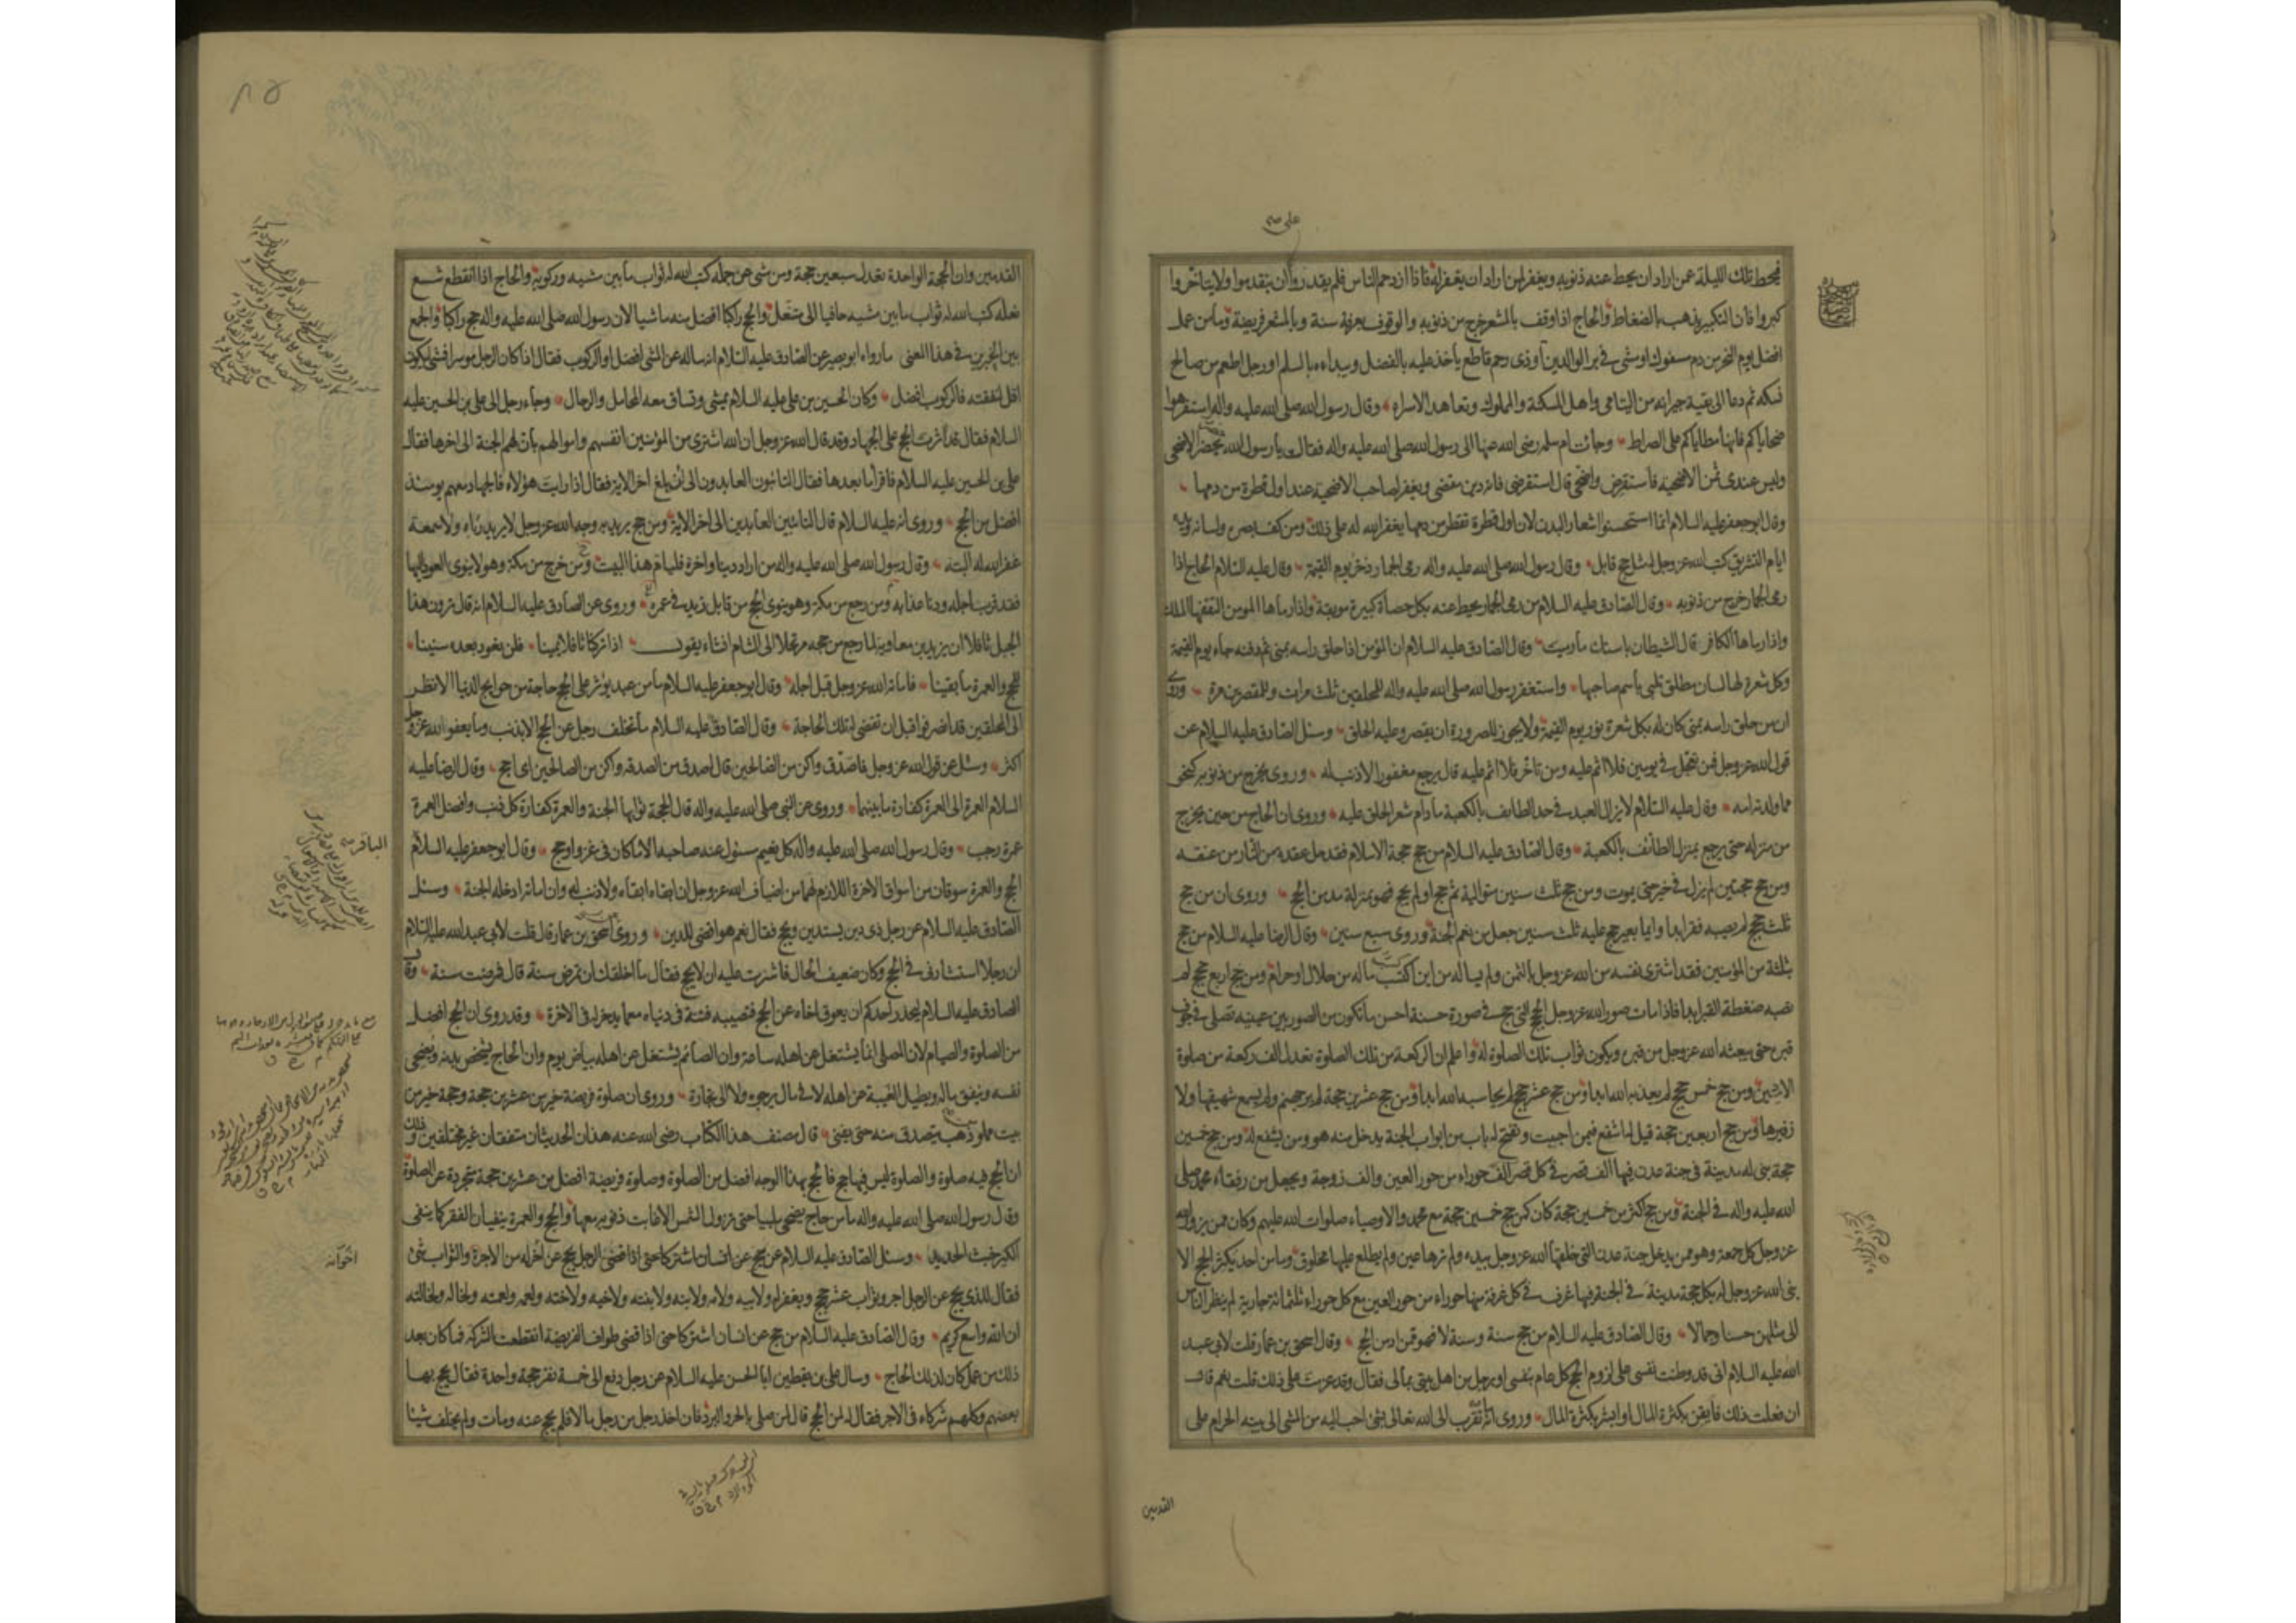 على
فيحط تلك الليلة عمن اراد ان يحط عنه ذنوبه ويغفر لمن اراد ان يغفر له فاذا ازدحم الناس فلم يقدروا ان يتقدموا ولا يتاخروا
كبروا فان التكبير يذهب بالضغاط والحاج اذا وقف بالمشعر خرج من ذنوبه والوقوف بعرفة سنة وبالمشعر فريضة وما من عمل
افضل يوم النحر من دم مسفوك او مشى فى بر الوالدين او ذى رحم قاطع ياخذ عليه بالفضل ويبداءه بالسلم او رجل اطعم من صالح
نسكه ثم دعا الى بقية جيرانه من اليتامى واهل المسكنة والمملوك وتعاهد الاسراء وقال رسول الله صلى الله عليه واله استفرهوا
ضحاياكم فانها مطاياكم على الصراط وجائت ام سلمه رضى الله عنها الى رسول الله صلى الله عليه واله فقالت يا رسول الله يحضر الاضحى
وليس عندى ثمن الاضحية فاستقرض واضحى قال استقرضى فانه دين مقضى ويغفر لصاحب الاضحية عند اول قطرة من دمها
وقال ابو جعفر عليه السلام انما استحسنوا اشعار البدن لان اول قطرة تقطر من دمها يغفر الله له على ذلك ومن كف بصره ولسانه ويده
ايام التشريق كتب الله عز وجل له مثل حج قابل وقال رسول الله صلى الله عليه واله رمى الجمار ذخر يوم القيمة وقال عليه السلام الحاج اذا
رمى الجمار خرج من ذنوبه وقال الصادق عليه السلام من رمى الجمار يحط عنه بكل حصاة كبيرة موبقة واذا رماها المومن التقفها الملك
واذا رماها الكافر قال الشيطان باستك ما رميت وقال الصادق عليه السلام ان المؤمن اذا حلق راسه بمنى ثم دفنه جاء يوم القيمة
وكل شعرة لها لسان مطلق تلبى باسم صاحبها واستغفر رسول الله صلى الله عليه واله للمحلقين ثلث مرات وللمقصرين مرة وروى
ان من حلق راسه بمنى كان له بكل شعرة نور يوم القيمة ولا يجوز للصرورة ان يقصر وعليه الحلق وسئل الصادق عليه السلام عن
قول الله عز وجل فمن تعجل فى يومين فلا اثم عليه ومن تاخر فلا اثم عليه قال يرجع مغفورا لا ذنب له وروى يخرج من ذنوبه كنحو
مما ولدته امه وقال عليه السلام لا يزال العبد فى حد الطايف بالكعبة ما دام شعر الحلق عليه وروى ان الحاج من حين يخرج
من منزله حتى يرجع بمنزلة الطائف بالكعبة وقال الصادق عليه السلام من حج حجة الاسلام فقد حل عقده من النار من عنقه
ومن حج حجتين لم يزل فى خير حتى يموت ومن حج ثلث سنين متوالية ثم حج او لم يحج فهو بمنزلة مدمن الحج وروى ان من حج
ثلث حجج لم يصبه فقر ابدا وايما بعير حج عليه ثلث سنين جعل من نعم الجنة وروى سبع سنين وقال الرضا عليه السلام من حج
بثلثة من المؤمنين فقد اشترى نفسه من الله عز وجل بالثمن ولم يساله من اين اكتسب ماله من حلال او حرام ومن حج اربع حجج لم
تصبه ضغطة القبر ابدا فاذا مات صور الله عز وجل الحج التى حج فى صورة حسنة احسن ما تكون من الصور بين عينيه تصلى فى جوف
قبره حتى يبعثه الله عز وجل من قبره ويكون ثواب تلك الصلوة له واعلم ان الركعة من تلك الصلوة تعدل الف ركعة من صلوة
الادميين ومن حج خمس حجج لم يعذبه الله ابدا ومن حج عشر حجج لم يحاسبه الله ابدا ومن حج عشرين حجة لم ير جهنم ولم يسمع شهيقها ولا
زفيرها ومن حج اربعين حجة قيل له اشفع فيمن احببت وتفتح له باب من ابواب الجنة يدخل منه هو ومن يشفع له ومن حج خمسين
حجة بنى له مدينة فى جنة عدن فيها الف قصر فى كل قصر الف حوراء من حور العين والف زوجة ويجعل من رفقاء محمد صلى
الله عليه واله فى الجنة ومن حج اكثر من خمسين حجة كان كمن حج خمسين حجة مع محمد والاوصياء صلوات الله عليهم وكان ممن يزوره الله
عز وجل كل جمعة وهو ممن يدخل جنة عدن التى خلقها الله عز وجل بيده ولم ترها عين ولم يطلع عليها مخلوق وما من احد يكثر الحج الا
بنى الله عز وجل له بكل حجة مدينة فى الجنة فيها غرف فى كل غرفة منها حوراء من حور العين مع كل حوراء ثلثمائة جارية لم ينظر الناس
الى مثلهن حسنا وجمالا وقال الصادق عليه السلام من حج سنة وسنة لا فهو ممن ادمن الحج وقال اسحق بن عمار قلت لابى عبد
الله عليه السلام انى قد وطنت نفسى على لزوم الحج كل عام بنفسى او برجل من اهل بيتى بمالى فقال وقد عزمت على ذلك قلت نعم قال
ان فعلت ذلك فايقن بكثرة المال او ابشر بكثرة المال وروى انه ما تقرب الى الله تعالى بشئ احب اليه من المشى الى بيته الحرام على
القدمين
القدمين وان الحجة الواحدة تعدل سبعين حجة ومن مشى عن جمله كتب الله له ثواب ما بين مشيه وركوبه والحاج اذا انقطع شسع
نعله كتب الله له ثواب ما بين مشيه حافيا الى متنعل والحج راكبا افضل منه ماشيا لان رسول الله صلى الله عليه واله حج راكبا والجمع
بين الخبرين فى هذا المعنى ما رواه ابو بصير عن الصادق عليه السلام انه ساله عن المشى افضل او الركوب فقال اذا كان الرجل موسرا فمشى ليكون
اقل لنفقته فالركوب افضل وكان الحسين بن على عليه السلام يمشى وتساق معه المحامل والرحال وجاء رجل الى على بن الحسين عليه
السلام فقال قد اثرت الحج على الجهاد وقد قال الله عز وجل ان الله اشترى من المؤمنين انفسهم واموالهم بان لهم الجنة الى اخرها فقال
على بن الحسين عليه السلام فاقرأ ما بعدها فقال التائبون العابدون الى ان بلغ اخر الاية فقال اذا رايت هؤلاء فالجهاد معهم يومئذ
افضل من الحج وروى انه عليه السلام قال التائبين العابدين الى اخر الاية ومن حج يريد به وجه الله عز وجل لا يريد به رياء ولا سمعة
غفر الله له البتة وقال رسول الله صلى الله عليه واله من اراد دنيا واخرة فليام هذا البيت ومن خرج من مكة وهو لا ينوى العود اليها
فقد قرب اجله ودنا عذابه ومن رجع من مكة وهو ينوى الحج من قابل زيد فى عمره وروى عن الصادق عليه السلام انه قال ترون هذا
الجبل ثافلا ان يزيد بن معاوية لما رجع من حجه مرتحلا الى الشام انشاء يقول اذا تركنا ثافلا يمينا فلن نعود بعده سنينا
للحج والعمرة ما بقينا فاماته الله عز وجل قبل اجله وقال ابو جعفر عليه السلام ما من عبد يؤثر على الحج حاجة من حوايج الدنيا الا نظر
الى المحلقين قد انصرفوا قبل ان تقضى له تلك الحاجة وقال الصادق عليه السلام ما تخلف رجل عن الحج الا بذنب وما يعفو الله عز وجل
اكثر وسئل عن قول الله عز وجل فاصدق واكن من الصالحين قال اصدق من الصدقه واكن من الصالحين اى احج وقال الرضا عليه
السلام العمرة الى العمرة كفارة ما بينهما وروى عن النبى صلى الله عليه واله قال الحجة ثوابها الجنة والعمرة كفارة كل ذنب وافضل العمرة
عمرة رجب وقال رسول الله صلى الله عليه واله كل نعيم مسئول عنه صاحبه الا ما كان فى غزو او حج وقال ابو جعفر عليه السلام
الباقر
الحج والعمرة سوقان من اسواق الاخرة اللازم لهما من اضياف الله عز وجل ان ابقاه ابقاه ولا ذنب له وان اماته ادخله الجنة وسئل
الصادق عليه السلام عن رجل ذى دين يستدين ويحج فقال نعم هو اقضى للدين وروى اسحق بن عمار قال قلت لابى عبد الله عليه السلام
ان رجلا استشارنى فى الحج وكان ضعيف الحال فاشرت عليه ان لا يحج فقال ما اخلقك ان تمرض سنة قال فمرضت سنة وقال
الصادق عليه السلام ليحذر احدكم ان يعوق اخاه عن الحج فتصيبه فتنة فى دنياه مع ما يدخر له فى الاخرة وقد روى ان الحج افضل
من الصلوة والصيام لان المصلى انما يشتغل عن اهله ساعة وان الصائم يشتغل عن اهله بياض يوم وان الحاج يشخص بدنه ويضحى
نفسه وينفق ماله ويطيل الغيبة عن اهله لا فى مال يرجوه ولا الى تجارة وروى ان صلوة فريضة خير من عشرين حجة وحجة خير من
بيت مملو ذهب يتصدق منه حتى يفنى قال مصنف هذا الكتاب رضى الله عنه هذان الحديثان متفقان غير مختلفين وذلك
ان الحج فيه صلوة والصلوة ليس فيها حج فالحج بهذا الوجه افضل من الصلوة وصلوة فريضة افضل من عشرين حجة متجردة عن الصلوة
وقال رسول الله صلى الله عليه واله ما من حاج يضحى ملبيا حتى تزول الشمس الا غابت ذنوبه معها والحج والعمرة ينفيان الفقر كما ينفى
الكير خبث الحديد وسئل الصادق عليه السلام عن رجل يحج عن اخر له من الاجر والثواب شئ
اخوانه
فقال للذى يحج عن الرجل اجر وثواب عشر حجج ويغفر له ولابيه ولامه ولابنه ولابنته ولاخيه ولاخته ولعمه ولعمته ولخاله ولخالته
ان الله واسع كريم وقال الصادق عليه السلام من حج عن انسان اشتركا حتى اذا قضى طواف الفريضة انقطعت الشركة فما كان بعد
ذلك من عمل كان لذلك الحاج وسال على بن يقطين ابا الحسن عليه السلام عن رجل دفع الى خمسة نفر حجة واحدة فقال يحج بها
بعضهم وكلهم شركاء فى الاجر فقال له لمن الحج قال لمن صلى بالحر والبرد فان اخذ رجل من رجل مالا فلم يحج عنه ومات ولم يخلف شيئا